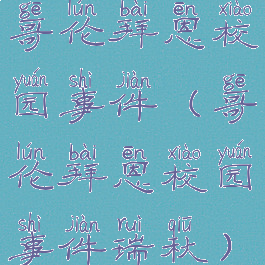 gē lún bài ēn xiào
哥伦拜恩校
yuán shì jiàn gē
园事件（哥
lún bài ēn xiào yuán
伦拜恩校园
shì jiàn ruì qiū
事件瑞秋）